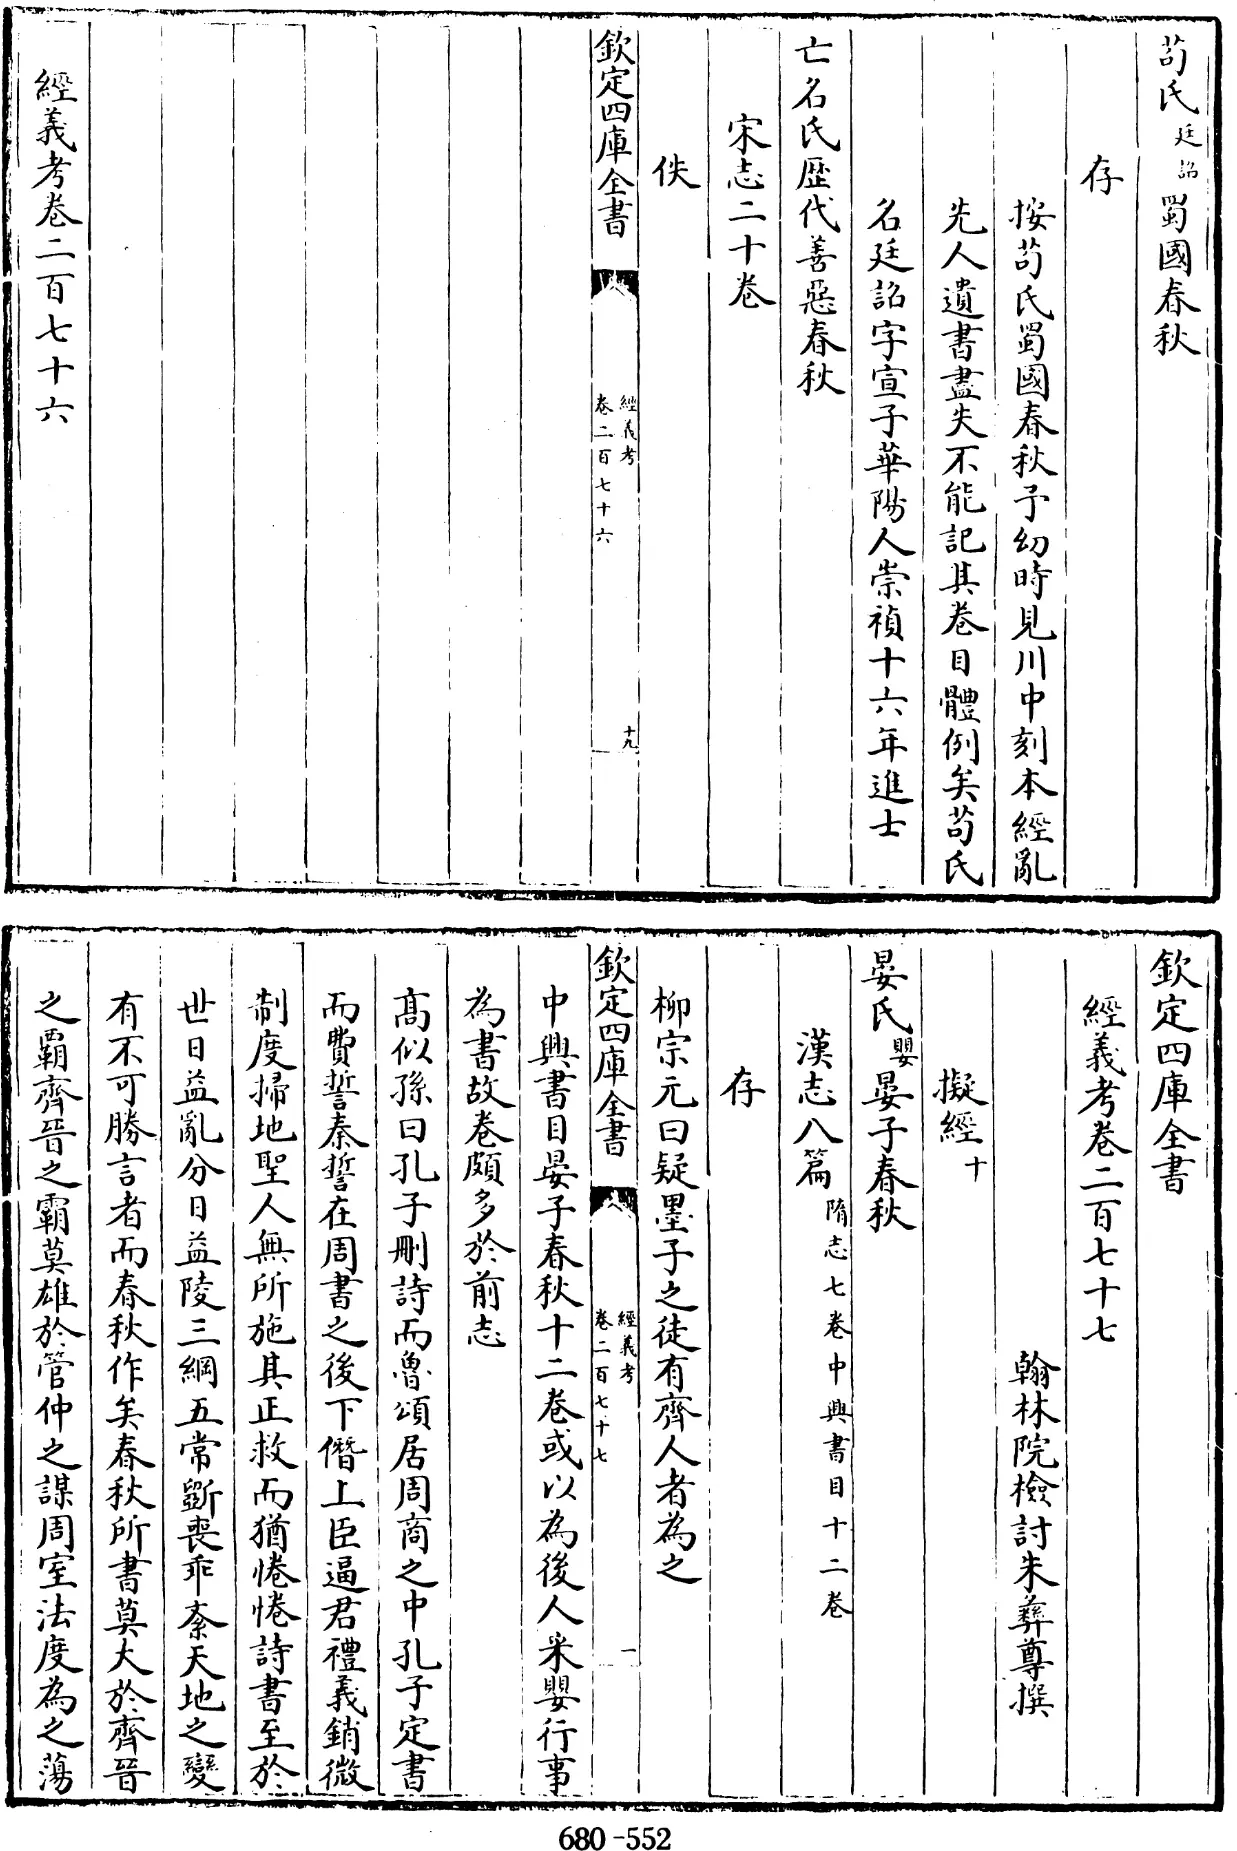 茍氏廷詔蜀國春秋
存
按茍氏蜀國春秋予幼時見川中刻本經亂
先人遺書盡失不能記其卷目體例矣茍氏
名廷詔字宣子華陽人崇禎十六年進士
亡名氏歴代善惡春秋
宋志二十卷
佚
欽定四庫全書
經義考
卷二百七十六
十九
經義考卷二百七十六
欽定四庫全書
經義考卷二百七十七
翰林院檢討朱彝尊撰
擬經十
晏氏嬰晏子春秋
漢志八篇隋志七卷中興書目十二卷
存
柳宗元曰疑墨子之徒有齊人者為之
欽定四庫全書
經義考
卷二百七十七
一
中興書目晏子春秋十二卷或以為後人采嬰行事
為書故卷頗多於前志
髙似孫曰孔子刪詩而魯頌居周商之中孔子定書
而費誓秦誓在周書之後下僭上臣逼君禮義銷微
制度掃地聖人無所施其正救而猶惓惓詩書至於
世日益亂分日益陵三綱五常斵喪乖紊天地之變
有不可勝言者而春秋作矣春秋所書莫大於齊晉
之覇齊晉之霸莫雄於管仲之謀周室法度為之蕩
680-552